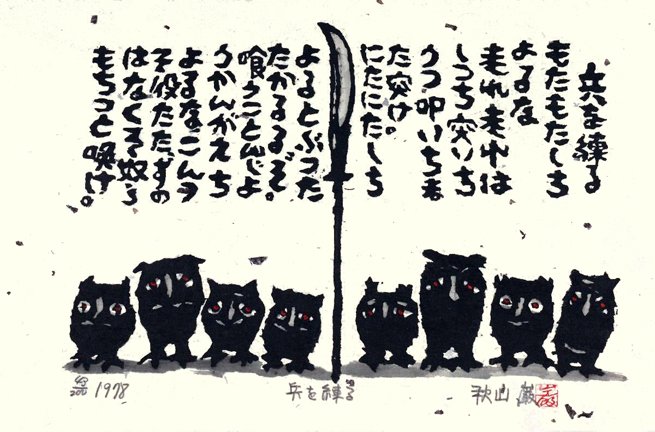 兵を練る
もたもたしち
よるな
走れ走れは
しつち突いち
うつ叩いちま
た突け。
にたにたしち
よるとぶつた
たかるるぞ。
喰うことんじよ
うかんがえち
よるなこんク
ソ役たたずの
はなくそ奴ら
もちつと喚け。
1978
兵を練る
秋山 巌